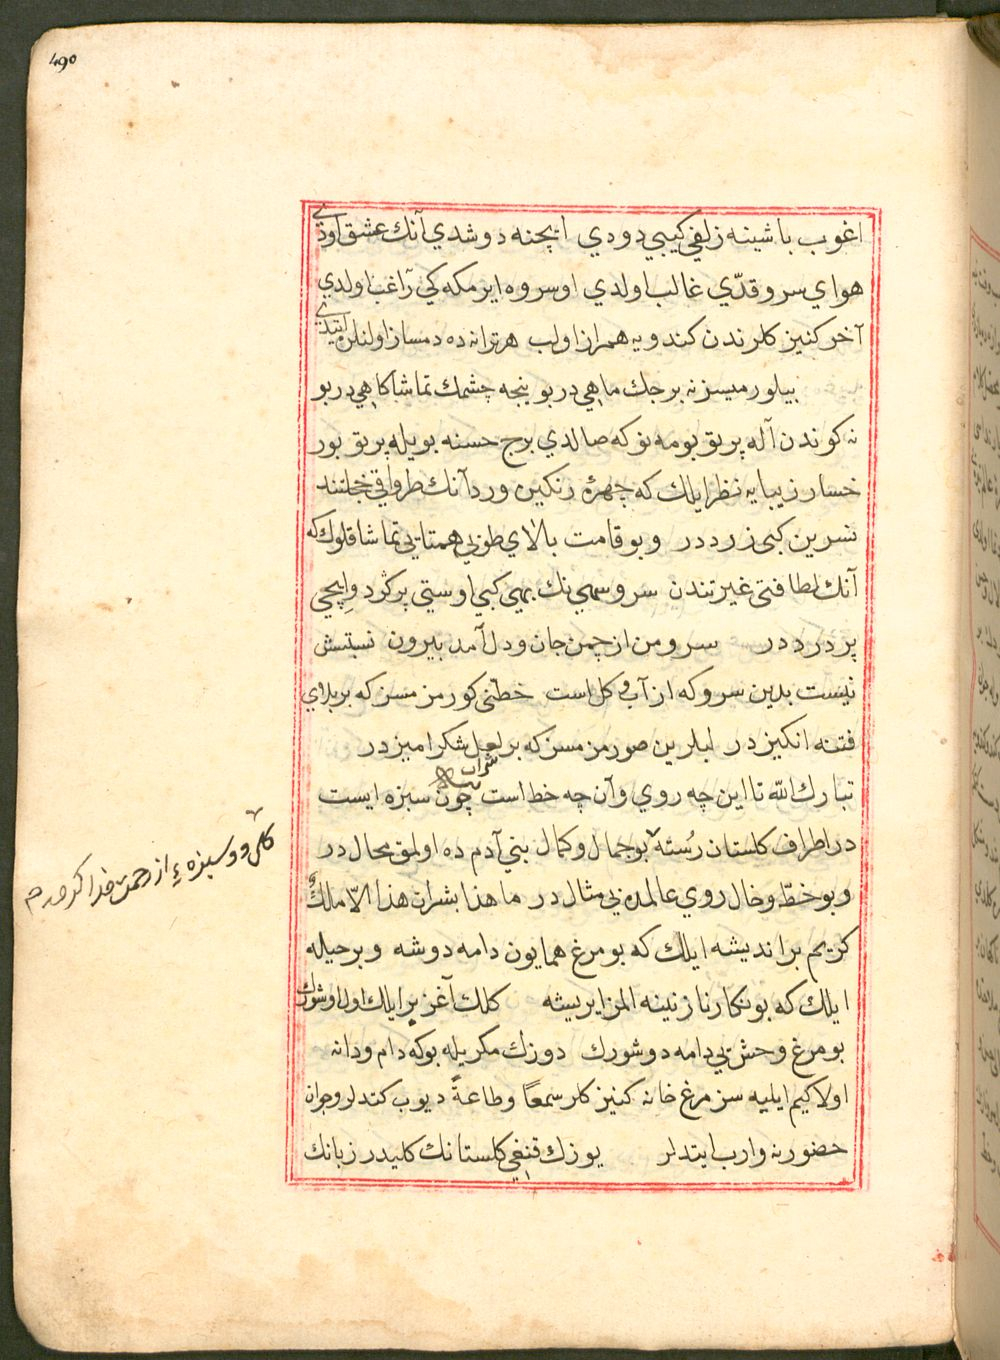 490
اغوب باشينه زلفي كيبي دودي ايچنه دوشدي آنك عشق اودي
هواي سرو قدّي غالب اولدي اوسروه ايرمكه كي راغب اولدي
آخر كنيزكلرندن كندويه همراز اولب هر ترانه ده دمساز اولنلرن ايتدي
بيلورميسز نه برجك ماهي در بو ينجه چشمك تماشاكاهي در بو
نه كوندن آله پرتو بو مه نو كه صالدي برج حسنه بويله پرتو بور
خسار زيبايه نظر ايلك كه چهرۀ رنكين ورد آنك طراوتي خجلتند
نسرين كبي زرددر وبو قامت بالاي طوبي همتايي تماشا قلوك كه
آنك لطافتي غيرتندن سرو سهي نك يهي كبي اوستي پر كرد وايچي
پر درددر سرو من از چمن جان ودل آمد بيرون نسبتش
نيست بدين سرو كه از آب و كل است خطّني كورمزمسز كه بر بلاي
فتنه انكيزدر لبلرين صورمزمسز كه بر لعل شكر اميزدر
شراب
تبارك الله تا اين چه روي وآن چه خط است چون سبزه ايست
در اطراف كلستان رُسته بو جمال وكمال بني آدم ده اولمق محال در
وبو خطّ وخال روي عالمده بي مثال در ما هذا بشران هذا الاّ ملكٌ
كريم بر انديشه ايلك كه بو مرغ همايون دامه دوشه وبر حيله
ايلك كه بو نكار نازنينه المز ايريشه كلك آغز بر ايلك اول اوشورك
بو مرغ وحش يي دامه دوشورك دوزك مكريله بوكه دام ودانه
اولاكيم ايليه سز مرغ خانه كنيزكلر سمعاً وطاعةً ديوب كندلر وجوان
حضورنه وارب ايتدلر يوزك قنغي كلستانك كليدر زبانك
كل وسبزه ء از رحمت خدا